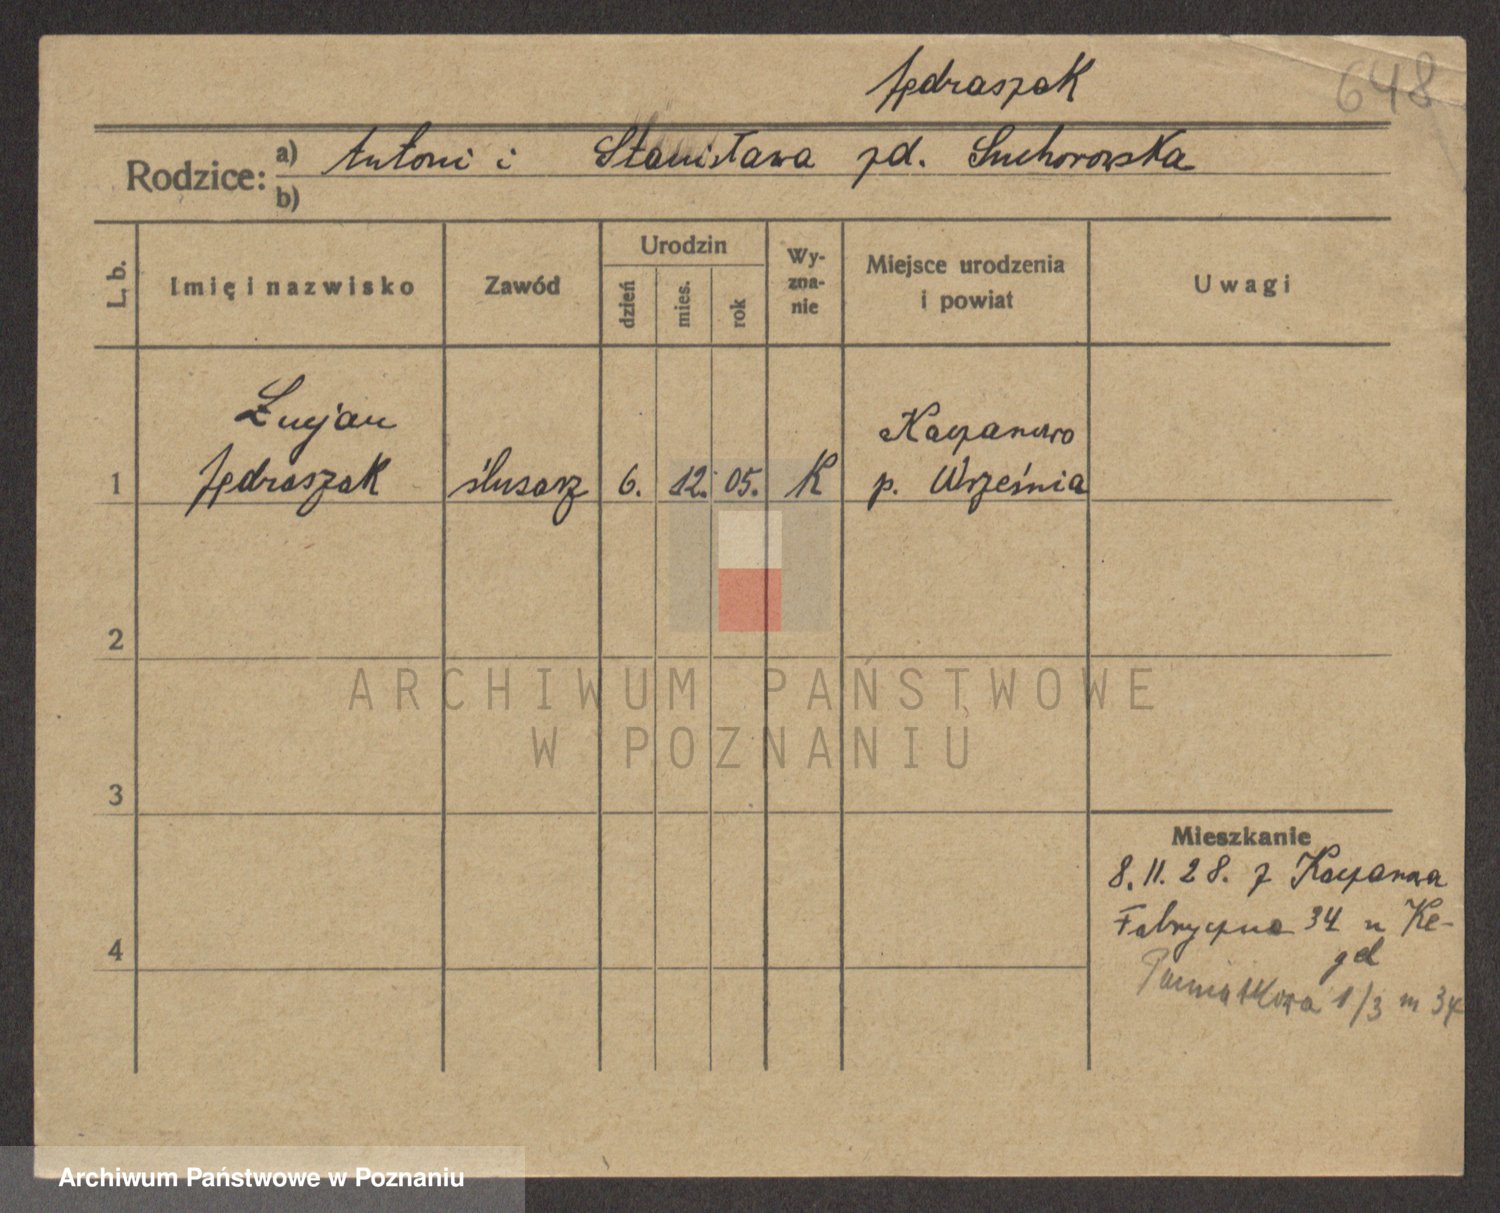 Jędraszak
648
Rodzice: a) Antoni i Stanisława zd. Suchorowska
b)
L. b.
Imię i nazwisko
Zawód
Urodzin
dzień
mies.
rok
Wy-
zna-
nie
Miejsce urodzenia
i powiat
Uwagi
Łucjan
Jędraszak
Kaczanowo
1 ślusarz 6. 12. 05. K p. Września
2
ARCHIWUM PAŃSTWOWE
W POZNANIU
3
Mieszkanie
8.11.28. z Kaczanowa
Fabryczna 34 u Ke-
gel
4
1/3 m 34
Archiwum Państwowe w Poznaniu